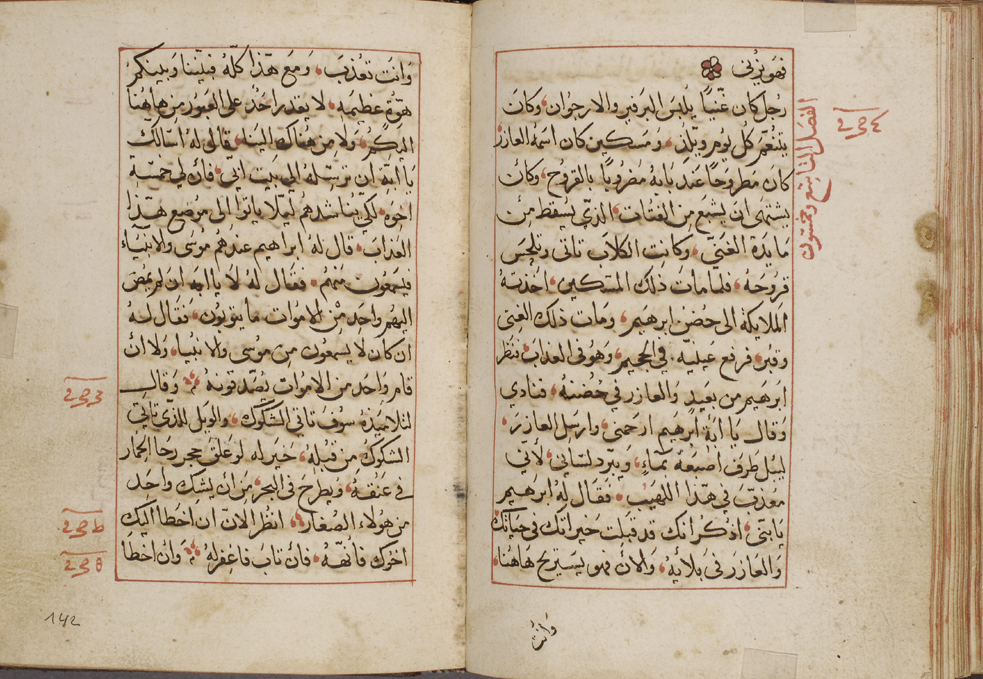 فهو يزني
رجل كان غنيا يلبس البرفير والارجوان وكان
يتنعم كل يوم ويلذ ومسكين كان اسمه العازر
كان مطروحا عند بابه مضروبا بالقروح وكان
يشتهى ان يشبع من الفتات الذي يسقط من
مايدة الغني وكانت الكلاب تاتى وتلحس
قروحه فلما مات ذلك المسكين اخذته
الملايكه الى حضن ابرهيم ومات ذلك الغنى
وقبر فرفع عينيه فى الجحيم وهو فى العذاب فنظر
ابرهيم من بعيد والعازر في حضنه فنادي
وقال يا ابة ابرهيم ارحمني وارسل العازر
ليبل طرف اصبعه بماء ويبرد لساني لأني
معذب في هذا اللهيب فقال له ابرهيم
يابني اذكر انك قد قبلت خيراتك في حياتك
والعازر في بلائه والان فهو يستريح هاهنا
وانت
الفصل التاسع وخمسون
وانت تعذب ومع هذا كله فبيننا وبينكم
هوه عظيمه لا يقدر احد على العبور من هاهنا
اليكم ولا من هناك الينا قال له اسالك
يا ابة ان ترسله الي بيت ابي فان لي خمسة
اخوه لكي يناشدهم ليلا ياتوا الى موضع هذا
العذاب قال له ابراهيم عندهم موسى والانبياء
فيسمعون منهم فقال له لا يا ابه ان لم يمض
اليهم واحد من الاموات ما يتوبون فقال له
ان كان لا يسمعون من موسى والانبيا ولا ان
قام واحد من الاموات يصدقونه وقال
لتلاميذه سوف تاتي الشكوك والويل للذي تاتي
الشكوك من قبله خير له لو علق حجر رحا الحمار
في عنقه ويطرح فى البحر من ان يشك واحد
من هولاء الصغار انظر الان ان اخطا اليك
اخوك فانهه فان تاب فاغفر له وان اخطا
142